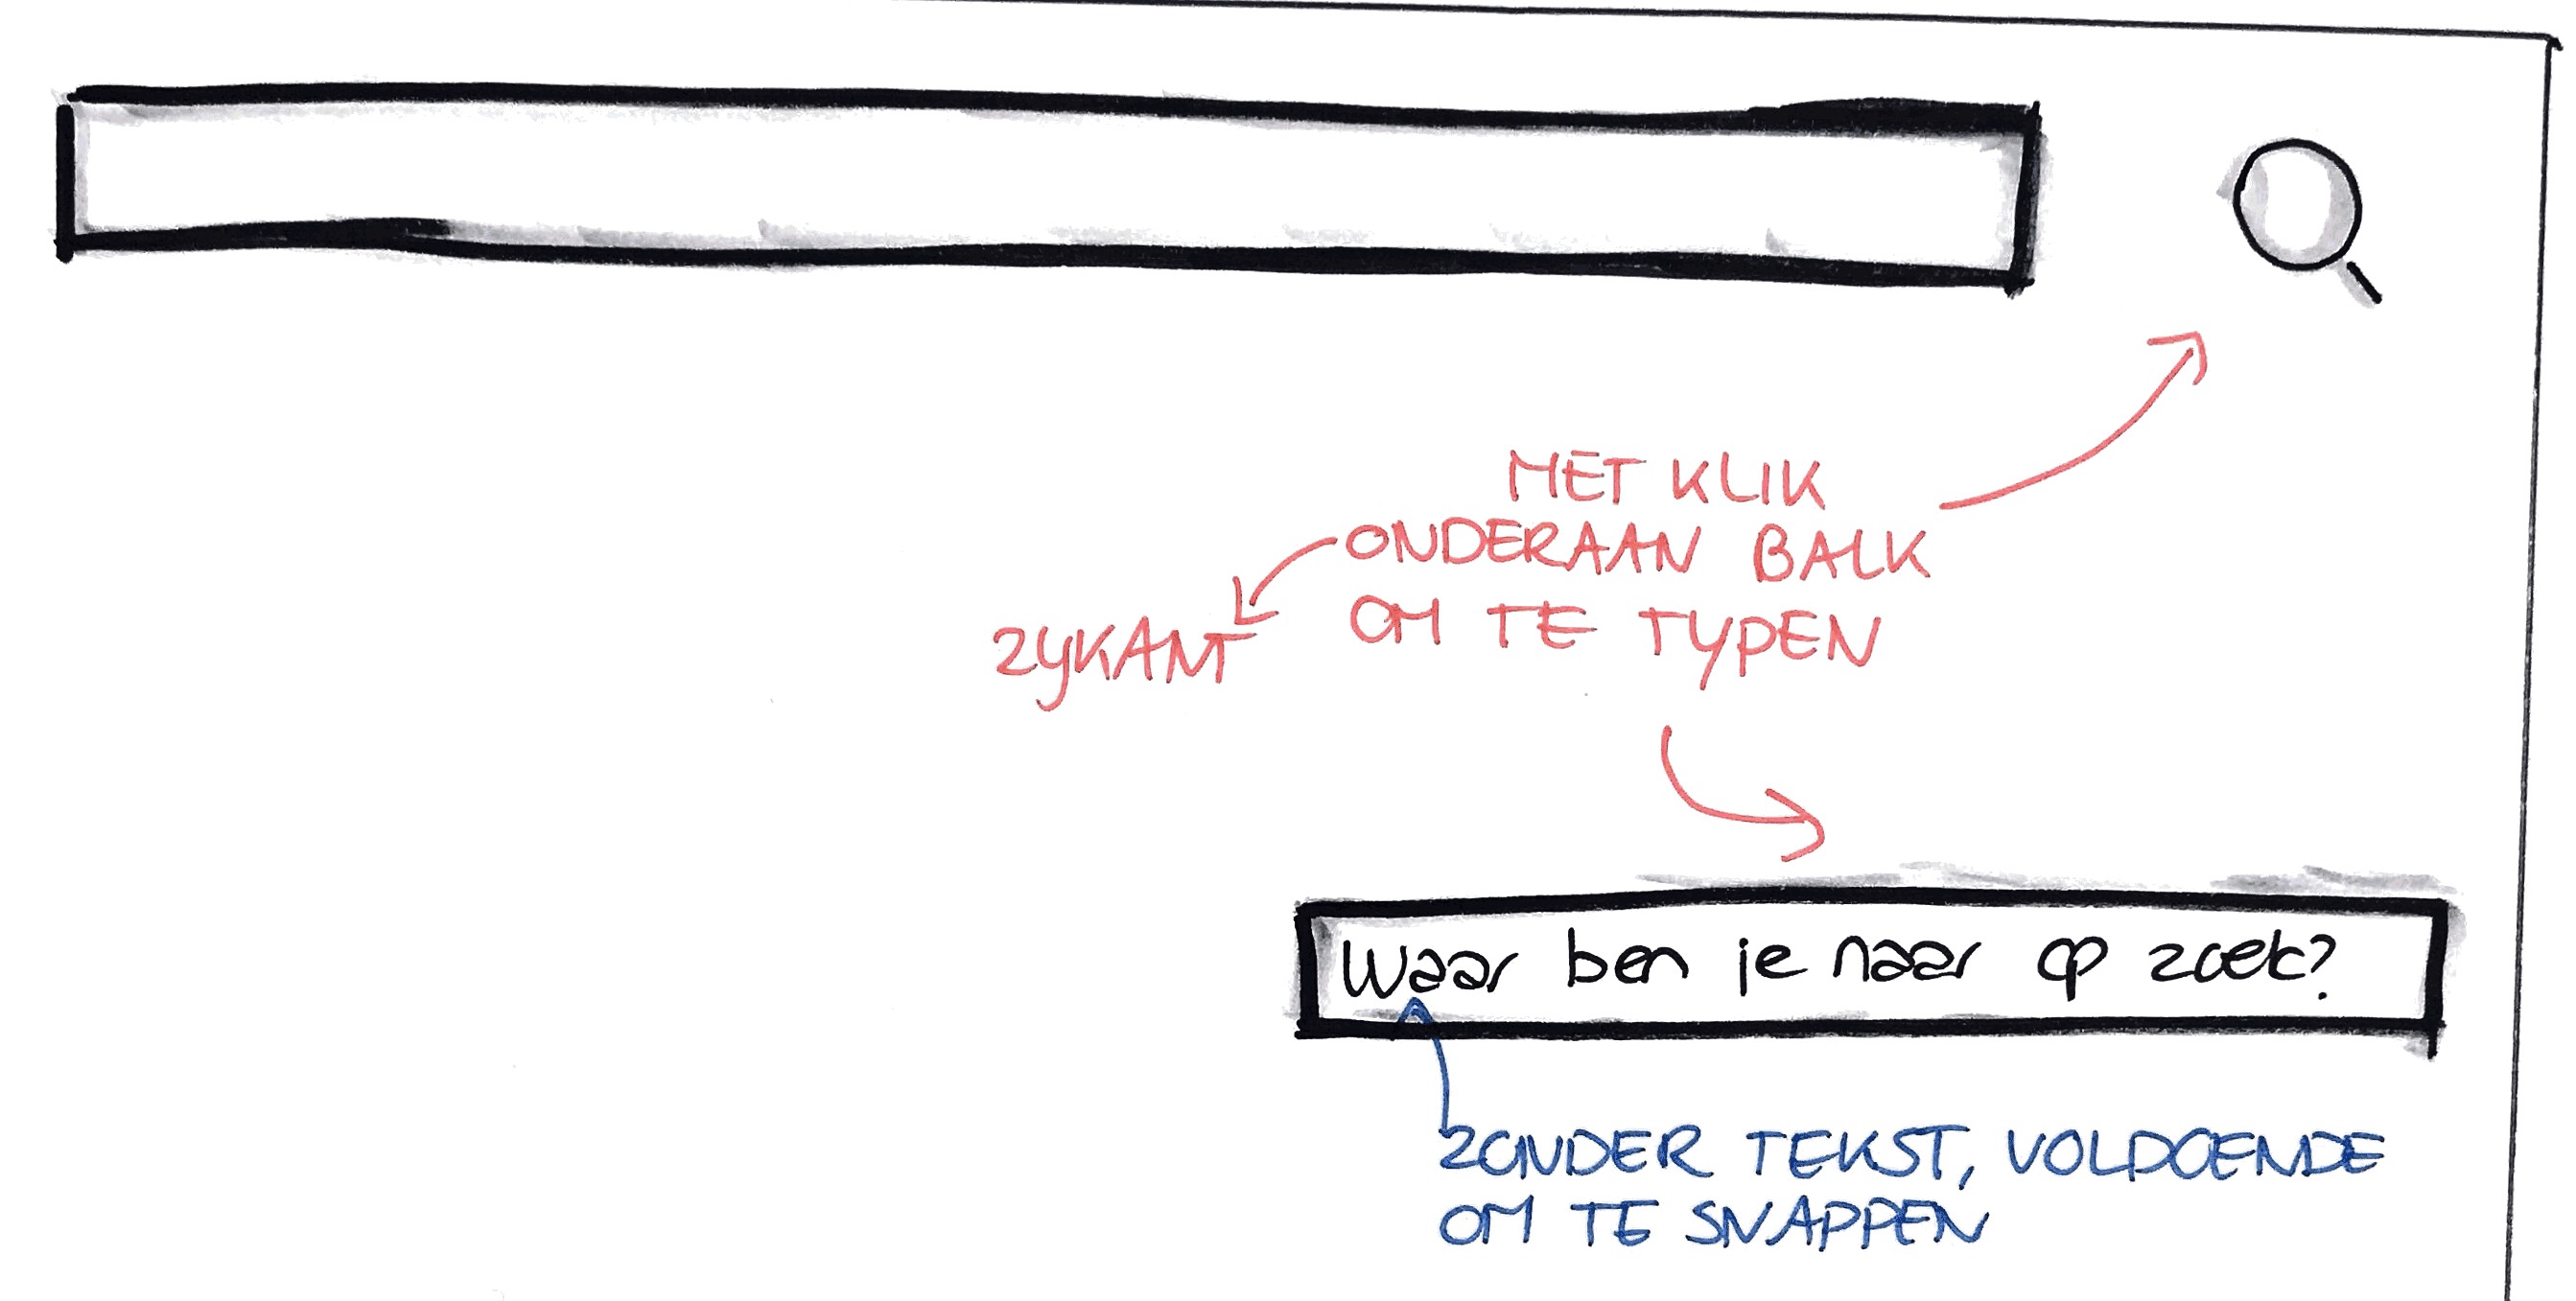 MET KLIK
ONDERAAN BALK
OM TE TYPEN
ZIJKANT
Waar ben je naar op zoek?
ZONDER TEKST, VOLDOENDE
OM TE SNAPPEN